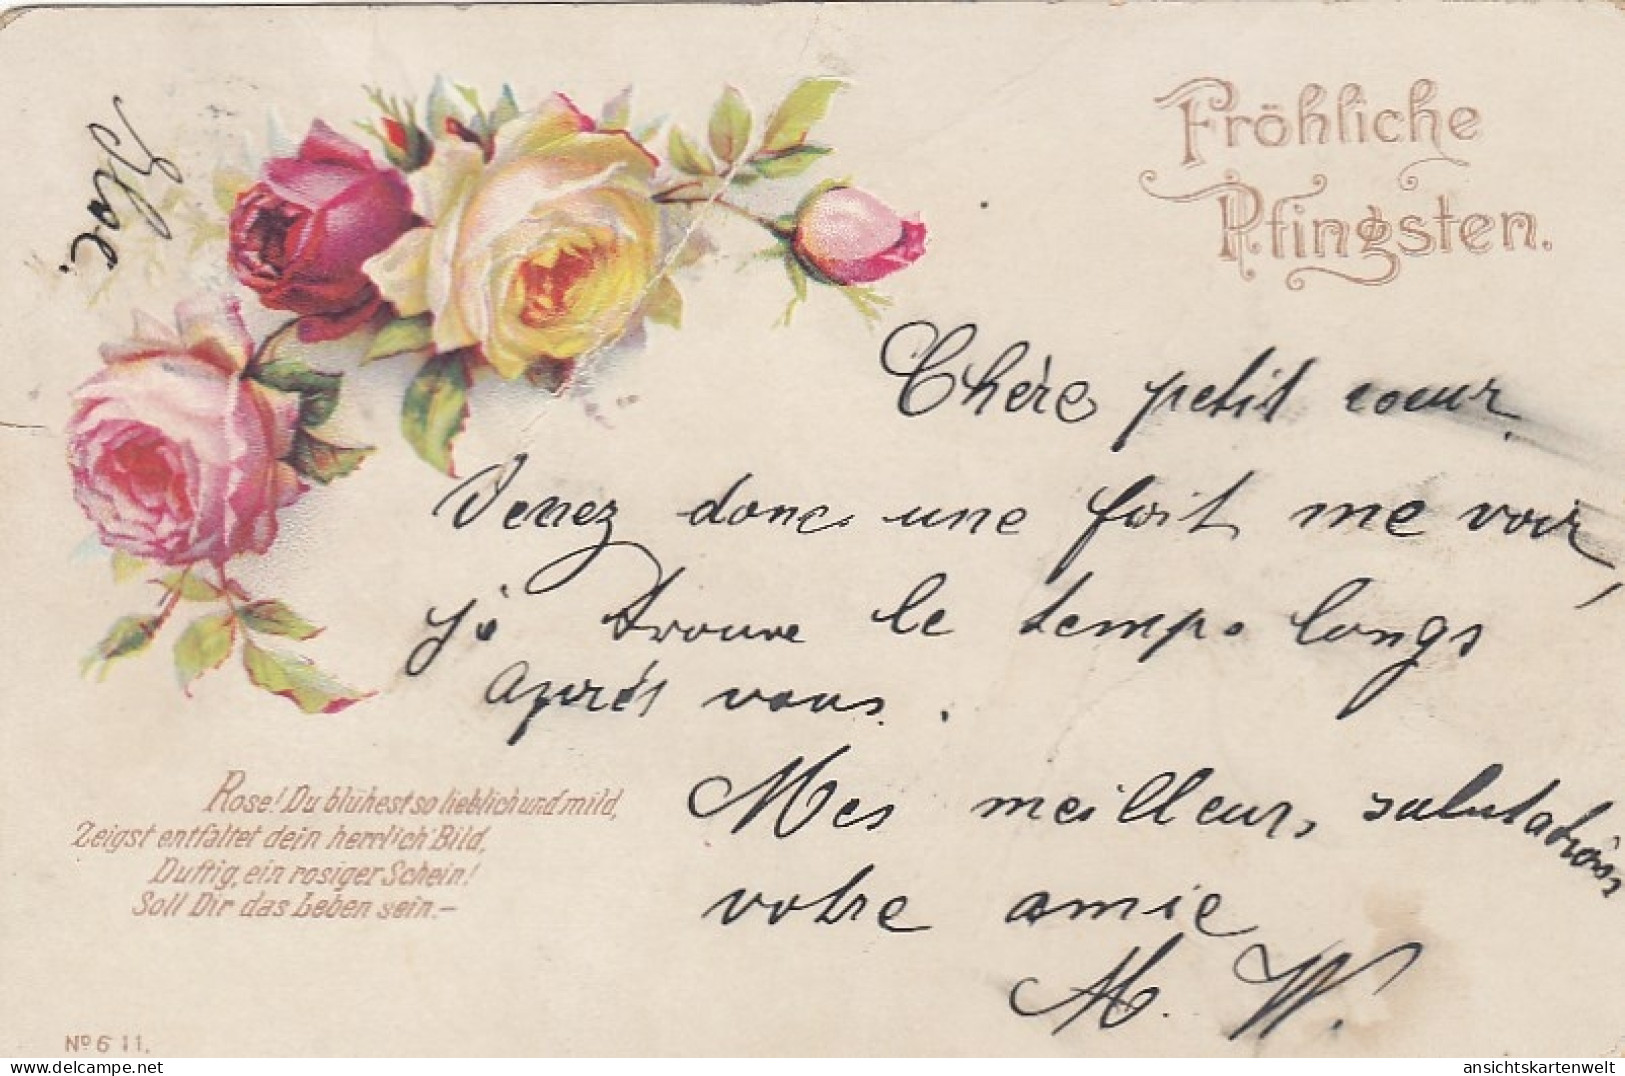 Fröhliche
Pfingsten.
Chère petit cœur
Venez donc une foit me voir,
je trouve le temps longs
aprés vous.
Mes meilleurs salutations
votre amie
M. W.
Rose! Du blühest so lieblich und mild,
Zeigst entfaltet dein herrlich Bild,
Duftig, ein rosiger Schein!
Soll Dir das Leben sein.—
No 611.
ansichtskartenwelt